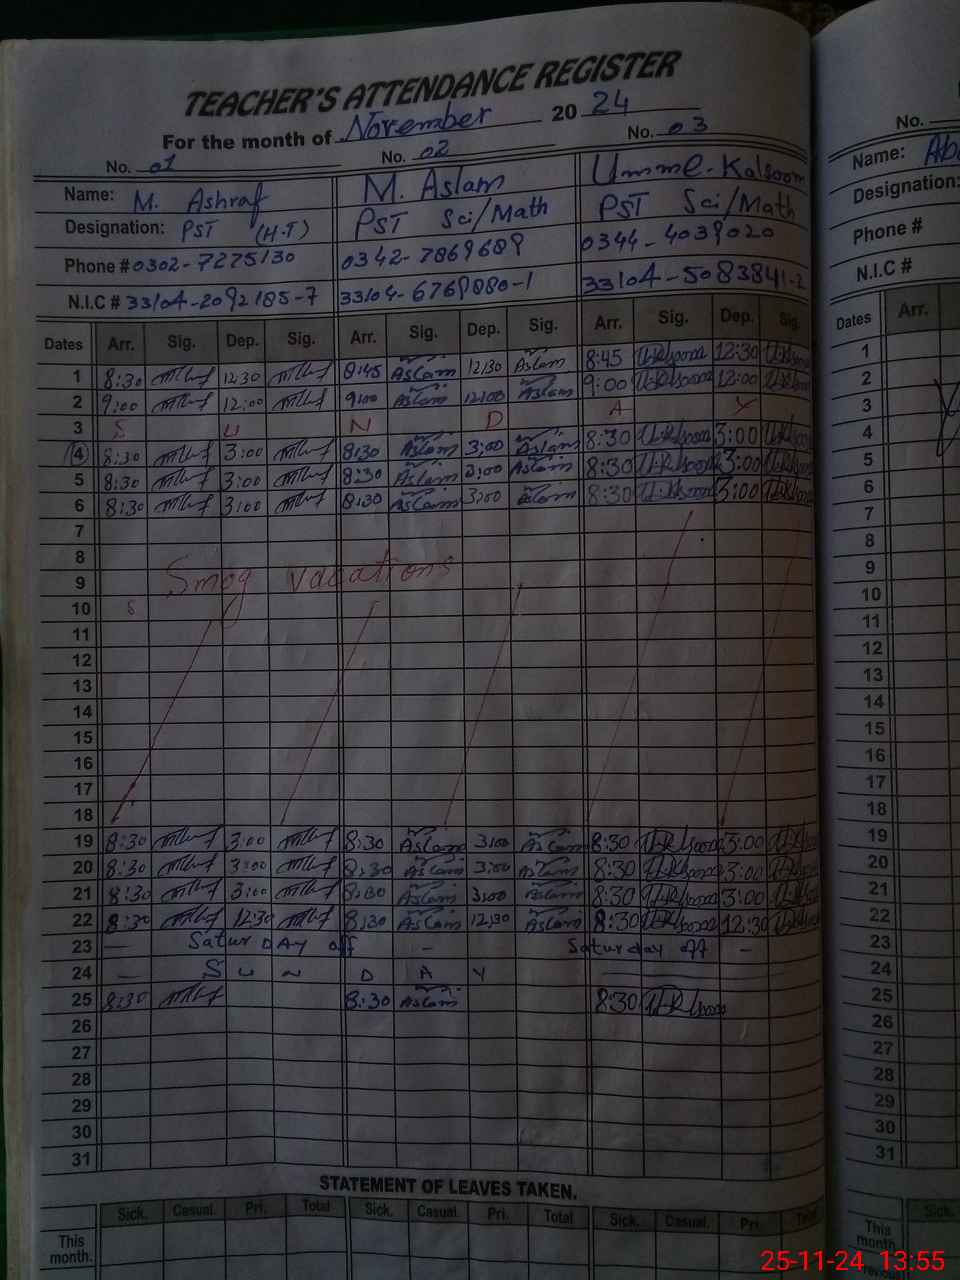 TEACHER'S ATTENDANCE REGISTER
For the month of November 2024
No. 01 No. 02 No. 03
Name: M. Ashraf M. Aslam Umme-Kalsoom
Designation: PST (H.T) PST Sci/Math PST Sci/Math
Phone # 0302-7275130 0342-7869689 0344-4039020
N.I.C # 33104-2092185-7 33104-6769880-1 33104-5083841-2
Dates Arr. Sig. Dep. Sig. Arr. Sig. Dep. Sig. Arr. Sig. Dep. Sig.
1 8:30 12:30 8:45 Aslam 12:30 Aslam 8:45 12:30
2 9:00 12:00 9:00 Aslam 12:00 Aslam 9:00 12:00
3 S U N D A Y
4 8:30 3:00 8:30 Aslam 3:00 Aslam 8:30 3:00
5 8:30 3:00 8:30 Aslam 3:00 Aslam 8:30 3:00
6 8:30 3:00 8:30 Aslam 3:00 Aslam 8:30 3:00
7
8
9 Smog vacations
10
11
12
13
14
15
16
17
18
19 8:30 3:00 8:30 Aslam 3:00 Aslam 8:30 3:00
20 8:30 3:00 8:30 Aslam 3:00 Aslam 8:30 3:00
21 8:30 3:00 8:30 Aslam 3:00 Aslam 8:30 3:00
22 8:30 12:30 8:30 Aslam 12:30 Aslam 8:30 12:30
23 — Saturday off — Saturday off —
24 — S U N D A Y
25 8:30 8:30 Aslam 8:30
26
27
28
29
30
31
STATEMENT OF LEAVES TAKEN.
Sick. Casual. Pri. Total Sick. Casual. Pri. Total Sick. Casual. Pri. Total
This month.
No.
Name: Ab
Designation:
Phone #
N.I.C #
Dates Arr.
1
2
3
4
5
6
7
8
9
10
11
12
13
14
15
16
17
18
19
20
21
22
23
24
25
26
27
28
29
30
31
Sick.
This month.
25-11-24 13:55